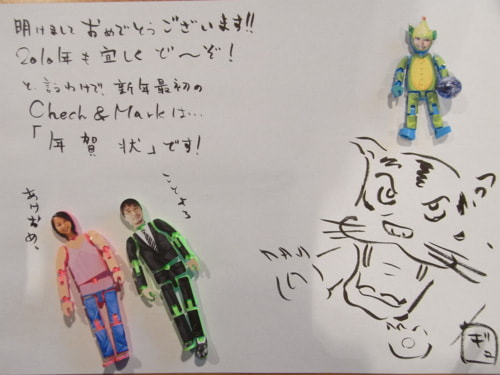 明けまして おめでとうございます!!
2010年も 宜しく ど〜ぞ!
と、言うわけで、新年最初の
Chech & Markは…
「年 賀 状」です!
ことよろ
あけおめ、